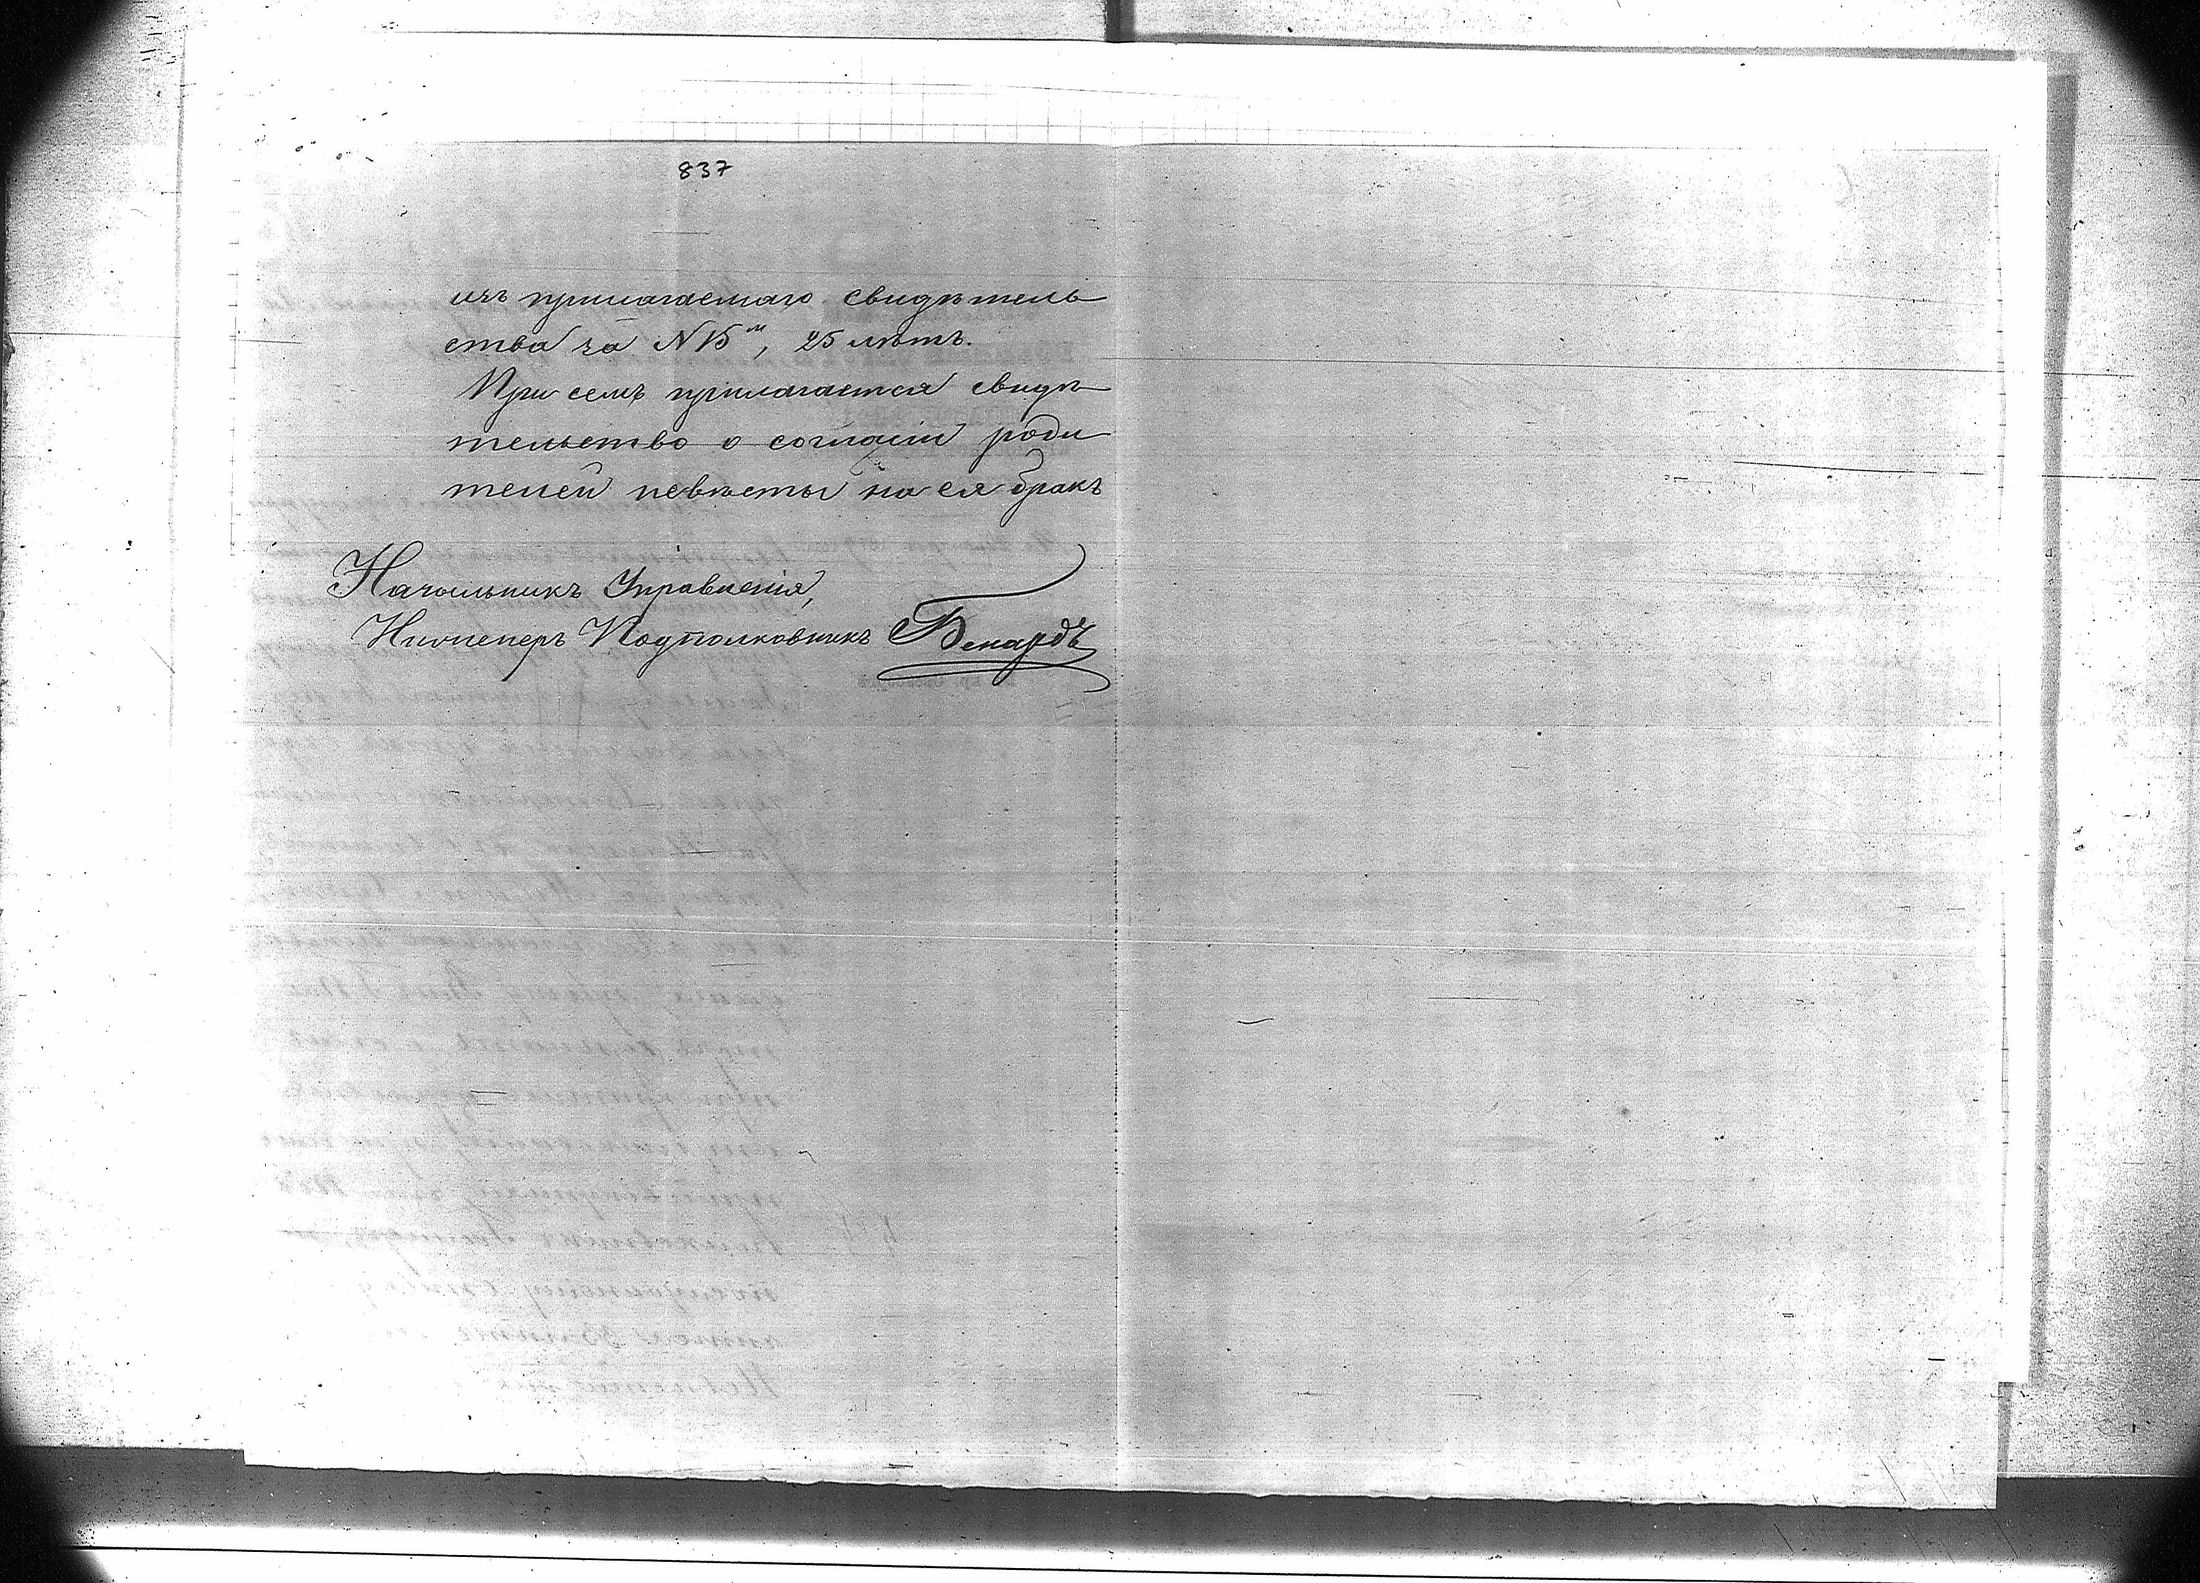 837
изъ прилагаемаго свидѣтель
ства за N 15ᵐ, 25 лѣтъ.
При семъ прилагается свидѣ
тельство о согласіи роди
телей невѣсты на ея бракъ
Начальникъ Управленія,
Инженеръ Подполковникъ Бенардъ